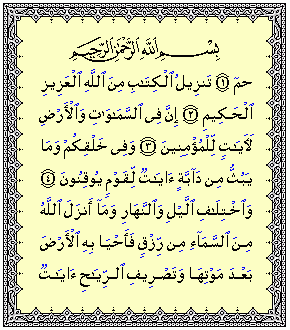 بِسْمِ ٱللَّهِ ٱلرَّحْمَٰنِ ٱلرَّحِيمِ
حمٓ ۝١ تَنزِيلُ ٱلْكِتَٰبِ مِنَ ٱللَّهِ ٱلْعَزِيزِ
ٱلْحَكِيمِ ۝٢ إِنَّ فِى ٱلسَّمَٰوَٰتِ وَٱلْأَرْضِ
لَءَايَٰتٍ لِّلْمُؤْمِنِينَ ۝٣ وَفِى خَلْقِكُمْ وَمَا
يَبُثُّ مِن دَآبَّةٍ ءَايَٰتٌ لِّقَوْمٍ يُوقِنُونَ ۝٤
وَٱخْتِلَٰفِ ٱلَّيْلِ وَٱلنَّهَارِ وَمَآ أَنزَلَ ٱللَّهُ
مِنَ ٱلسَّمَآءِ مِن رِّزْقٍ فَأَحْيَا بِهِ ٱلْأَرْضَ
بَعْدَ مَوْتِهَا وَتَصْرِيفِ ٱلرِّيَٰحِ ءَايَٰتٌ